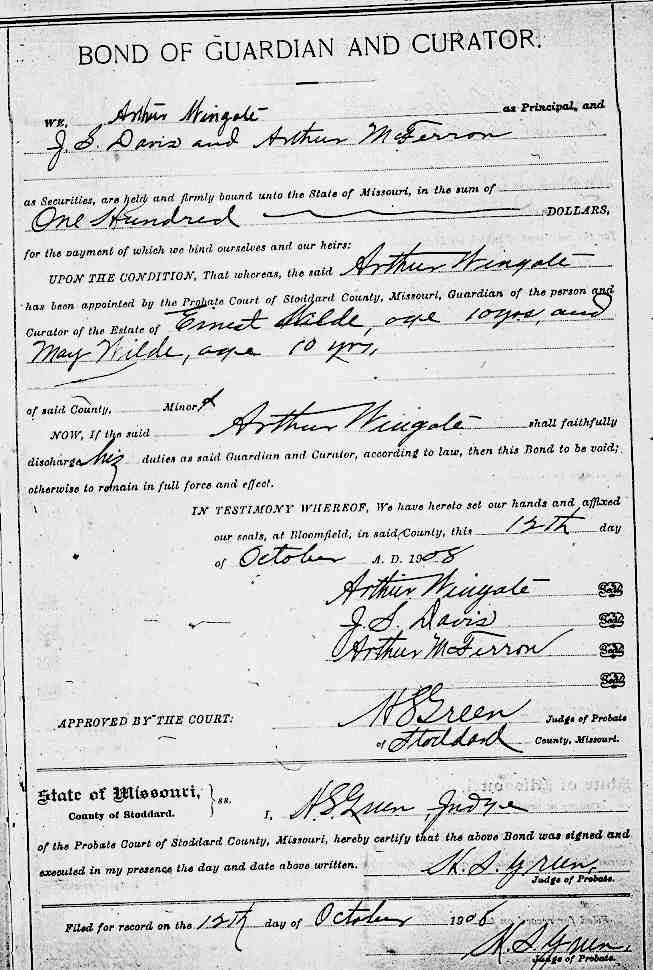 BOND OF GUARDIAN AND CURATOR.
WE, Arthur Wingate as Principal, and
J. S. Davis and Arthur McFerron
as Securities, are held and firmly bound unto the State of Missouri, in the sum of
One Hundred DOLLARS,
for the payment of which we bind ourselves and our heirs:
UPON THE CONDITION, That whereas, the said Arthur Wingate
has been appointed by the Probate Court of Stoddard County, Missouri, Guardian of the person and
Curator of the Estate of Ernest Wilde, age 10 yrs, and
May Wilde, age 10 yrs,
of said County, Minors
NOW, If the said Arthur Wingate shall faithfully
discharge his duties as said Guardian and Curator, according to law, then this Bond to be void;
otherwise to remain in full force and effect.
IN TESTIMONY WHEREOF, We have hereto set our hands and affixed
our seals, at Bloomfield, in said County, this 12th day
of October A. D. 1908
Arthur Wingate Seal
J. S. Davis Seal
Arthur McFerron Seal
Seal
APPROVED BY THE COURT: H S Green Judge of Probate
of Stoddard County, Missouri.
State of Missouri, } ss.
County of Stoddard. I, H. S. Green, Judge
of the Probate Court of Stoddard County, Missouri, hereby certify that the above Bond was signed and
executed in my presence the day and date above written. H. S. Green,
Judge of Probate.
Filed for record on the 12th day of October 1908
H. S. Green,
Judge of Probate.